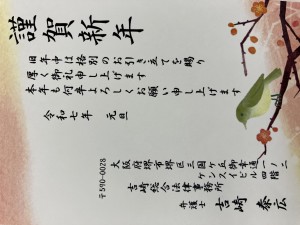 謹賀新年
旧年中は格別のお引き立てを賜り
厚く御礼申し上げます
本年も何卒よろしくお願い申し上げます
令和七年 元旦
〒590-0028
大阪府堺市堺区三国ケ丘御幸通一ノ二
ケンスイビル四階
吉崎総合法律事務所
弁護士 吉崎 泰広